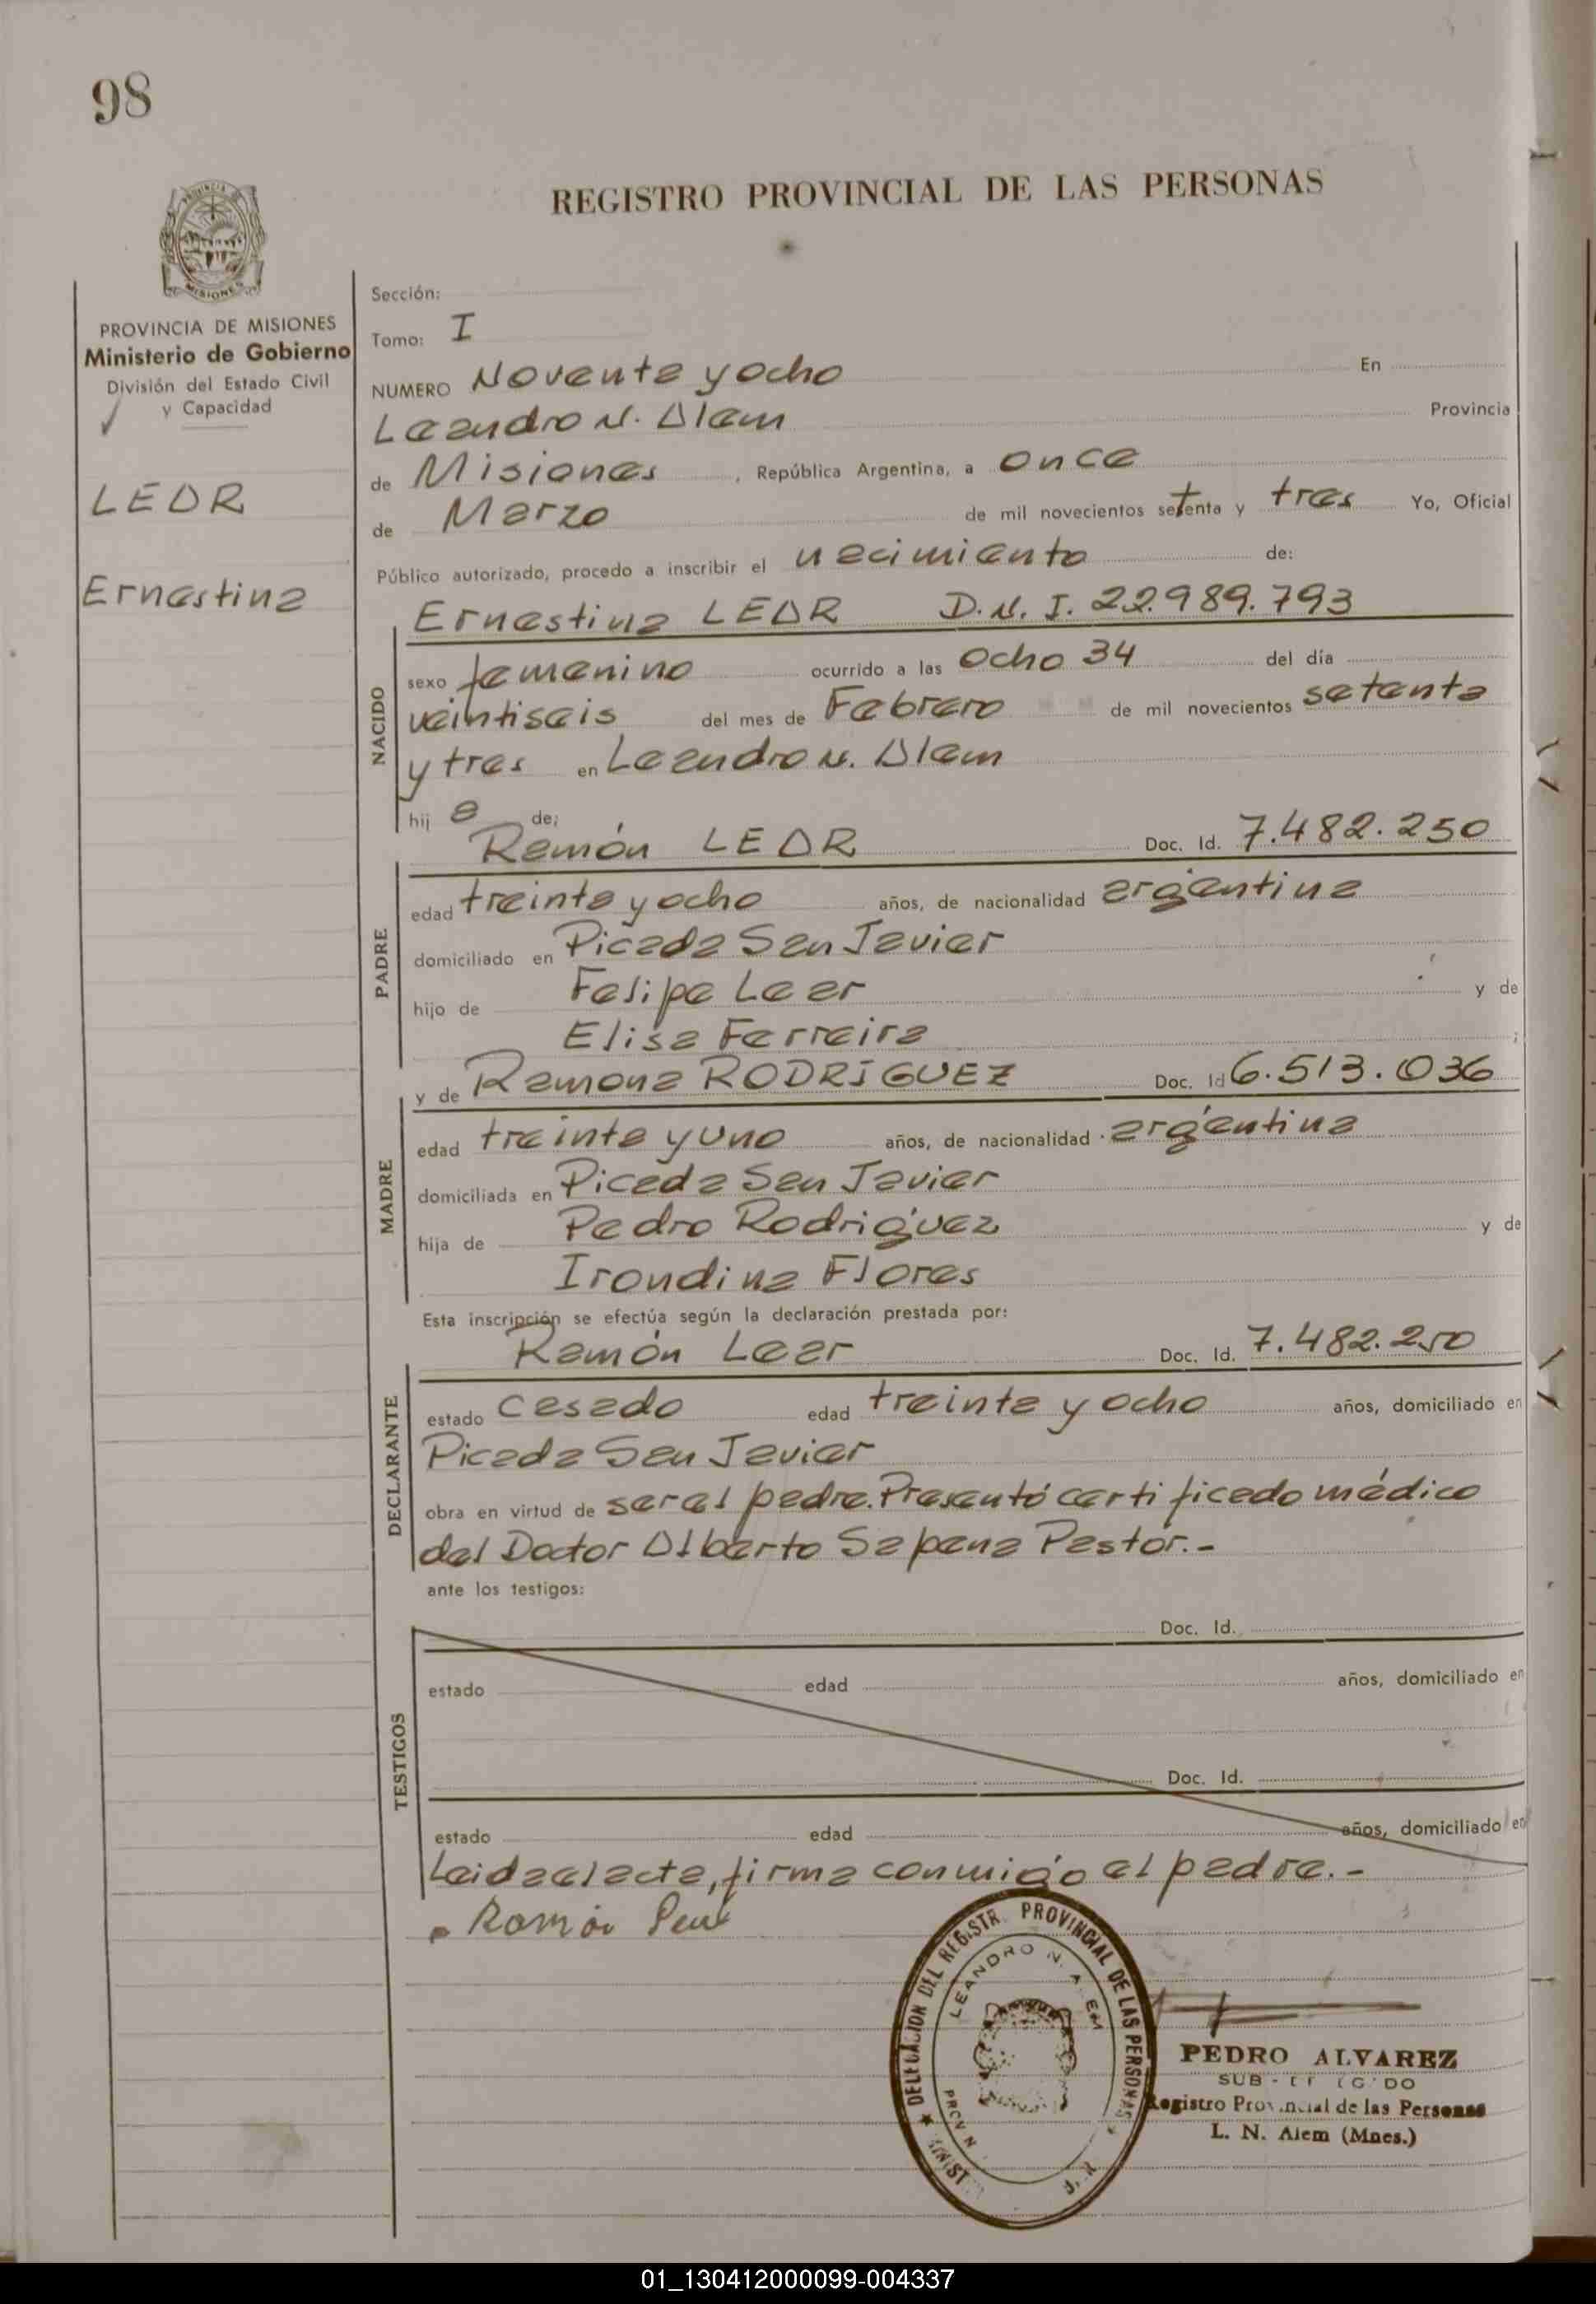 98
REGISTRO PROVINCIAL DE LAS PERSONAS
MISIONES
PROVINCIA DE MISIONES
Ministerio de Gobierno
División del Estado Civil
y Capacidad
LEAR
Ernestina
Sección:
Tomo: I
NUMERO Noventa y ocho En
Leandro N. Alem Provincia
de Misiones, República Argentina, a once
de Marzo de mil novecientos setenta y tres Yo, Oficial
Público autorizado, procedo a inscribir el nacimiento de:
Ernestina LEAR D.N.I. 22.989.793
NACIDO
sexo femenino ocurrido a las ocho 34 del día
veintiseis del mes de Febrero de mil novecientos setenta
y tres en Leandro N. Alem
hija de:
Ramón LEAR Doc. Id. 7.482.250
PADRE
edad treinta y ocho años, de nacionalidad argentina
domiciliado en Picada San Javier
hijo de Felipe Lear y de
Elisa Ferreira ;
y de Ramona RODRÍGUEZ Doc. Id 6.513.036
MADRE
edad treinta y uno años, de nacionalidad argentina
domiciliada en Picada San Javier
hija de Pedro Rodriguez y de
Irondina Flores
Esta inscripción se efectúa según la declaración prestada por:
Ramón Lear Doc. Id. 7.482.250
DECLARANTE
estado casado edad treinta y ocho años, domiciliado en
Picada San Javier
obra en virtud de ser el padre. Presentó certificado médico
del Doctor Alberto Sapena Pastor.-
ante los testigos:
Doc. Id.
TESTIGOS
estado edad años, domiciliado en
Doc. Id.
estado edad años, domiciliado en
Leida el acta, firma conmigo el padre.-
Ramón
DELEGACION DEL REGISTR. PROVINCIAL DE LAS PERSONAS
LEANDRO N. A EM
PEDRO ALVAREZ
SUB-
Registro Provincial de las Personas
L. N. Alem (Mnes.)
01_130412000099-004337